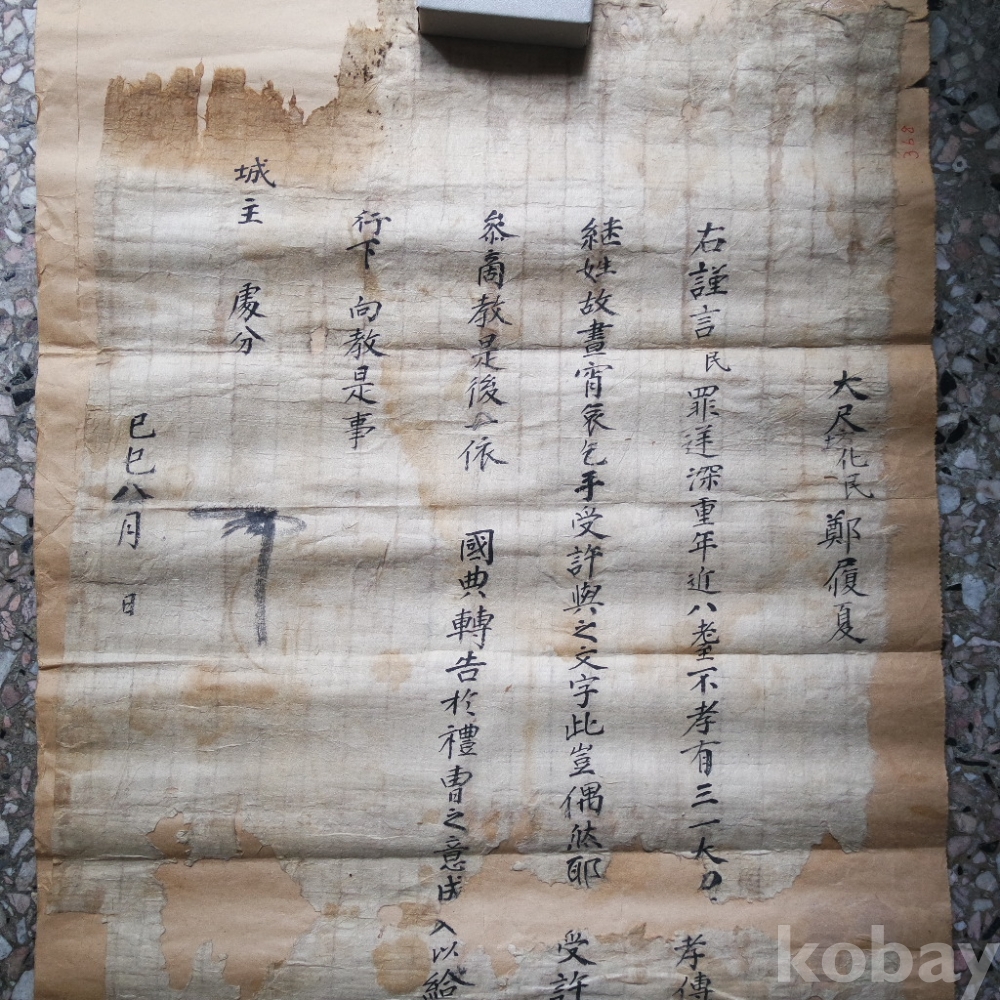 大尺 化民 鄭履夏
右謹言民罪逆深重年近八耋不孝有三一大 孝傳
継姓故晝宵哀乞手受許與之文字此豈偶然耶 受許
叅商教是後 依 國典轉告於禮曹之意成 以給
行下向教是事
城主 處分
己巳八月 日
368
kobay